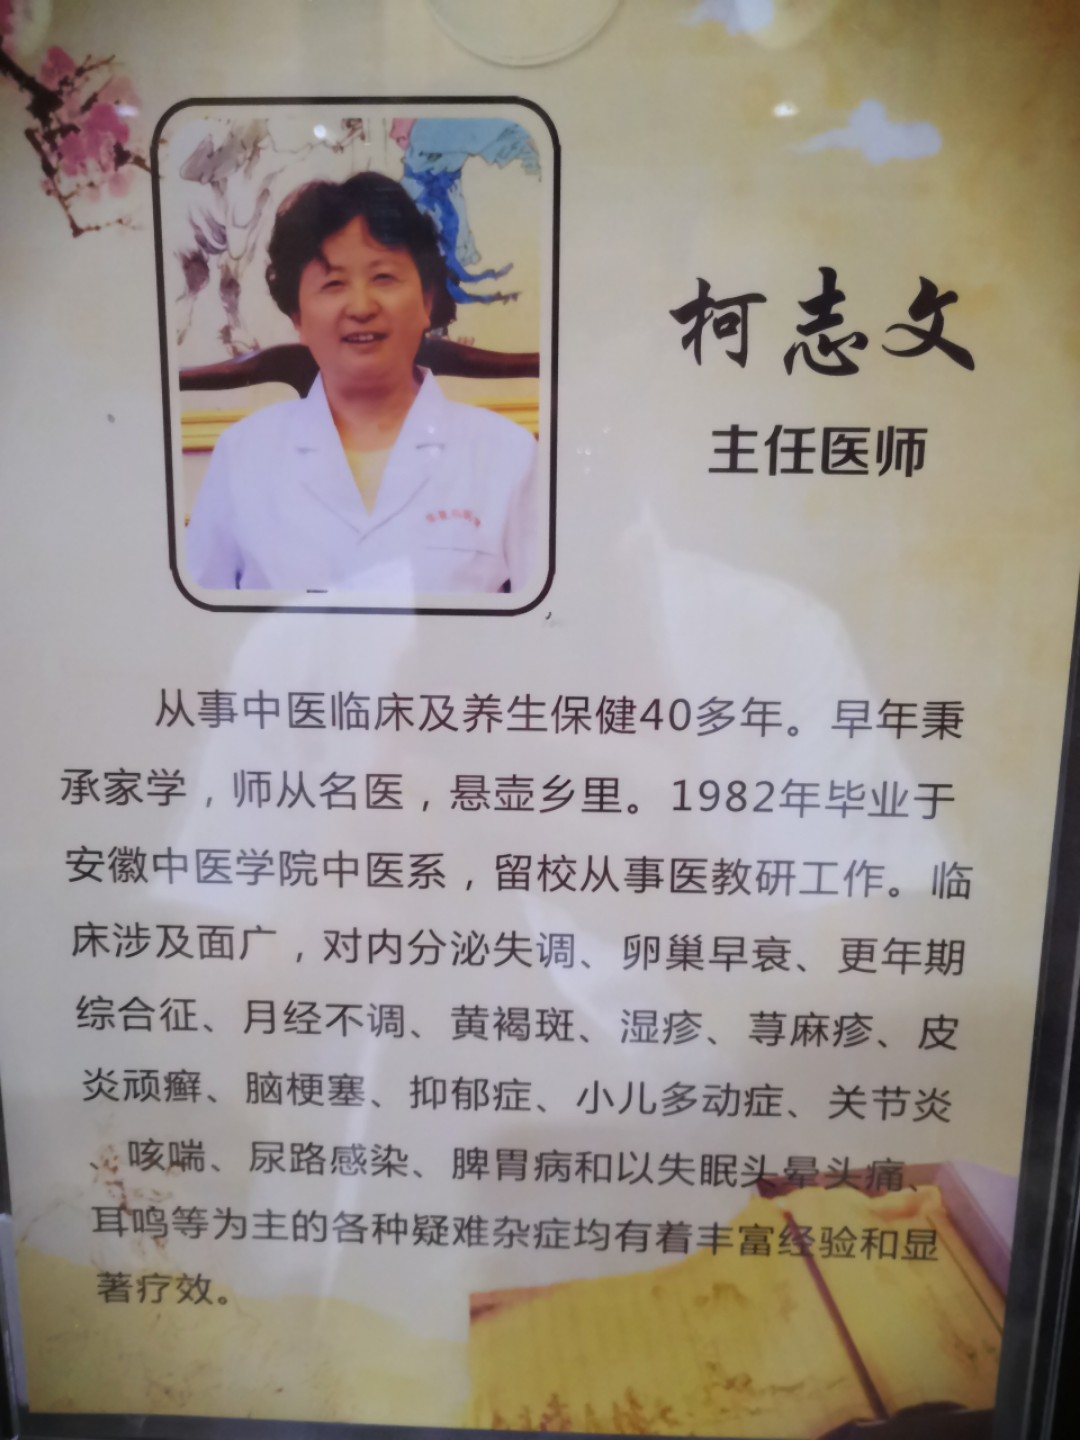 柯志文
主任医师
从事中医临床及养生保健40多年。早年秉
承家学，师从名医，悬壶乡里。1982年毕业于
安徽中医学院中医系，留校从事医教研工作。临
床涉及面广，对内分泌失调、卵巢早衰、更年期
综合征、月经不调、黄褐斑、湿疹、荨麻疹、皮
炎顽癣、脑梗塞、抑郁症、小儿多动症、关节炎
、咳喘、尿路感染、脾胃病和以失眠头晕头痛、
耳鸣等为主的各种疑难杂症均有着丰富经验和显
著疗效。